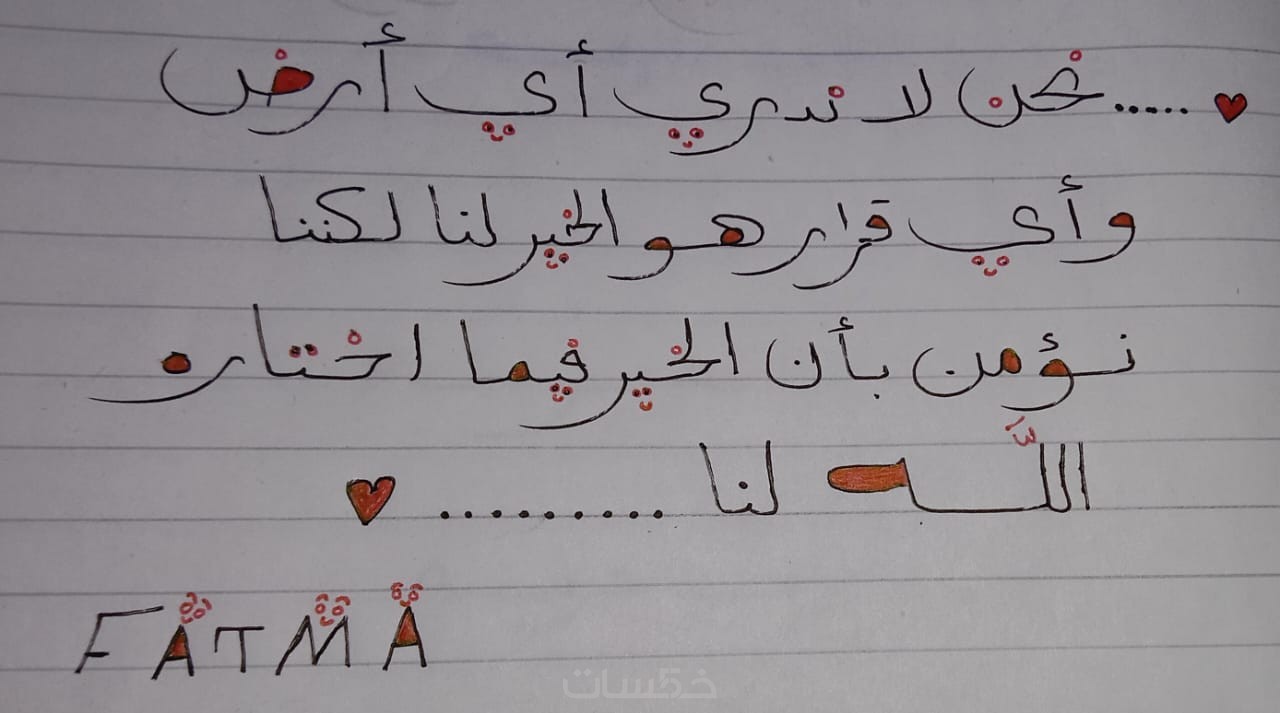 ♥.....نحن لا ندري أي أرض
وأي قرار هو الخير لنا لكننا
نؤمن بأن الخير فيما اختاره
اللّه لنا .......... ♥
FATMA
خمسات